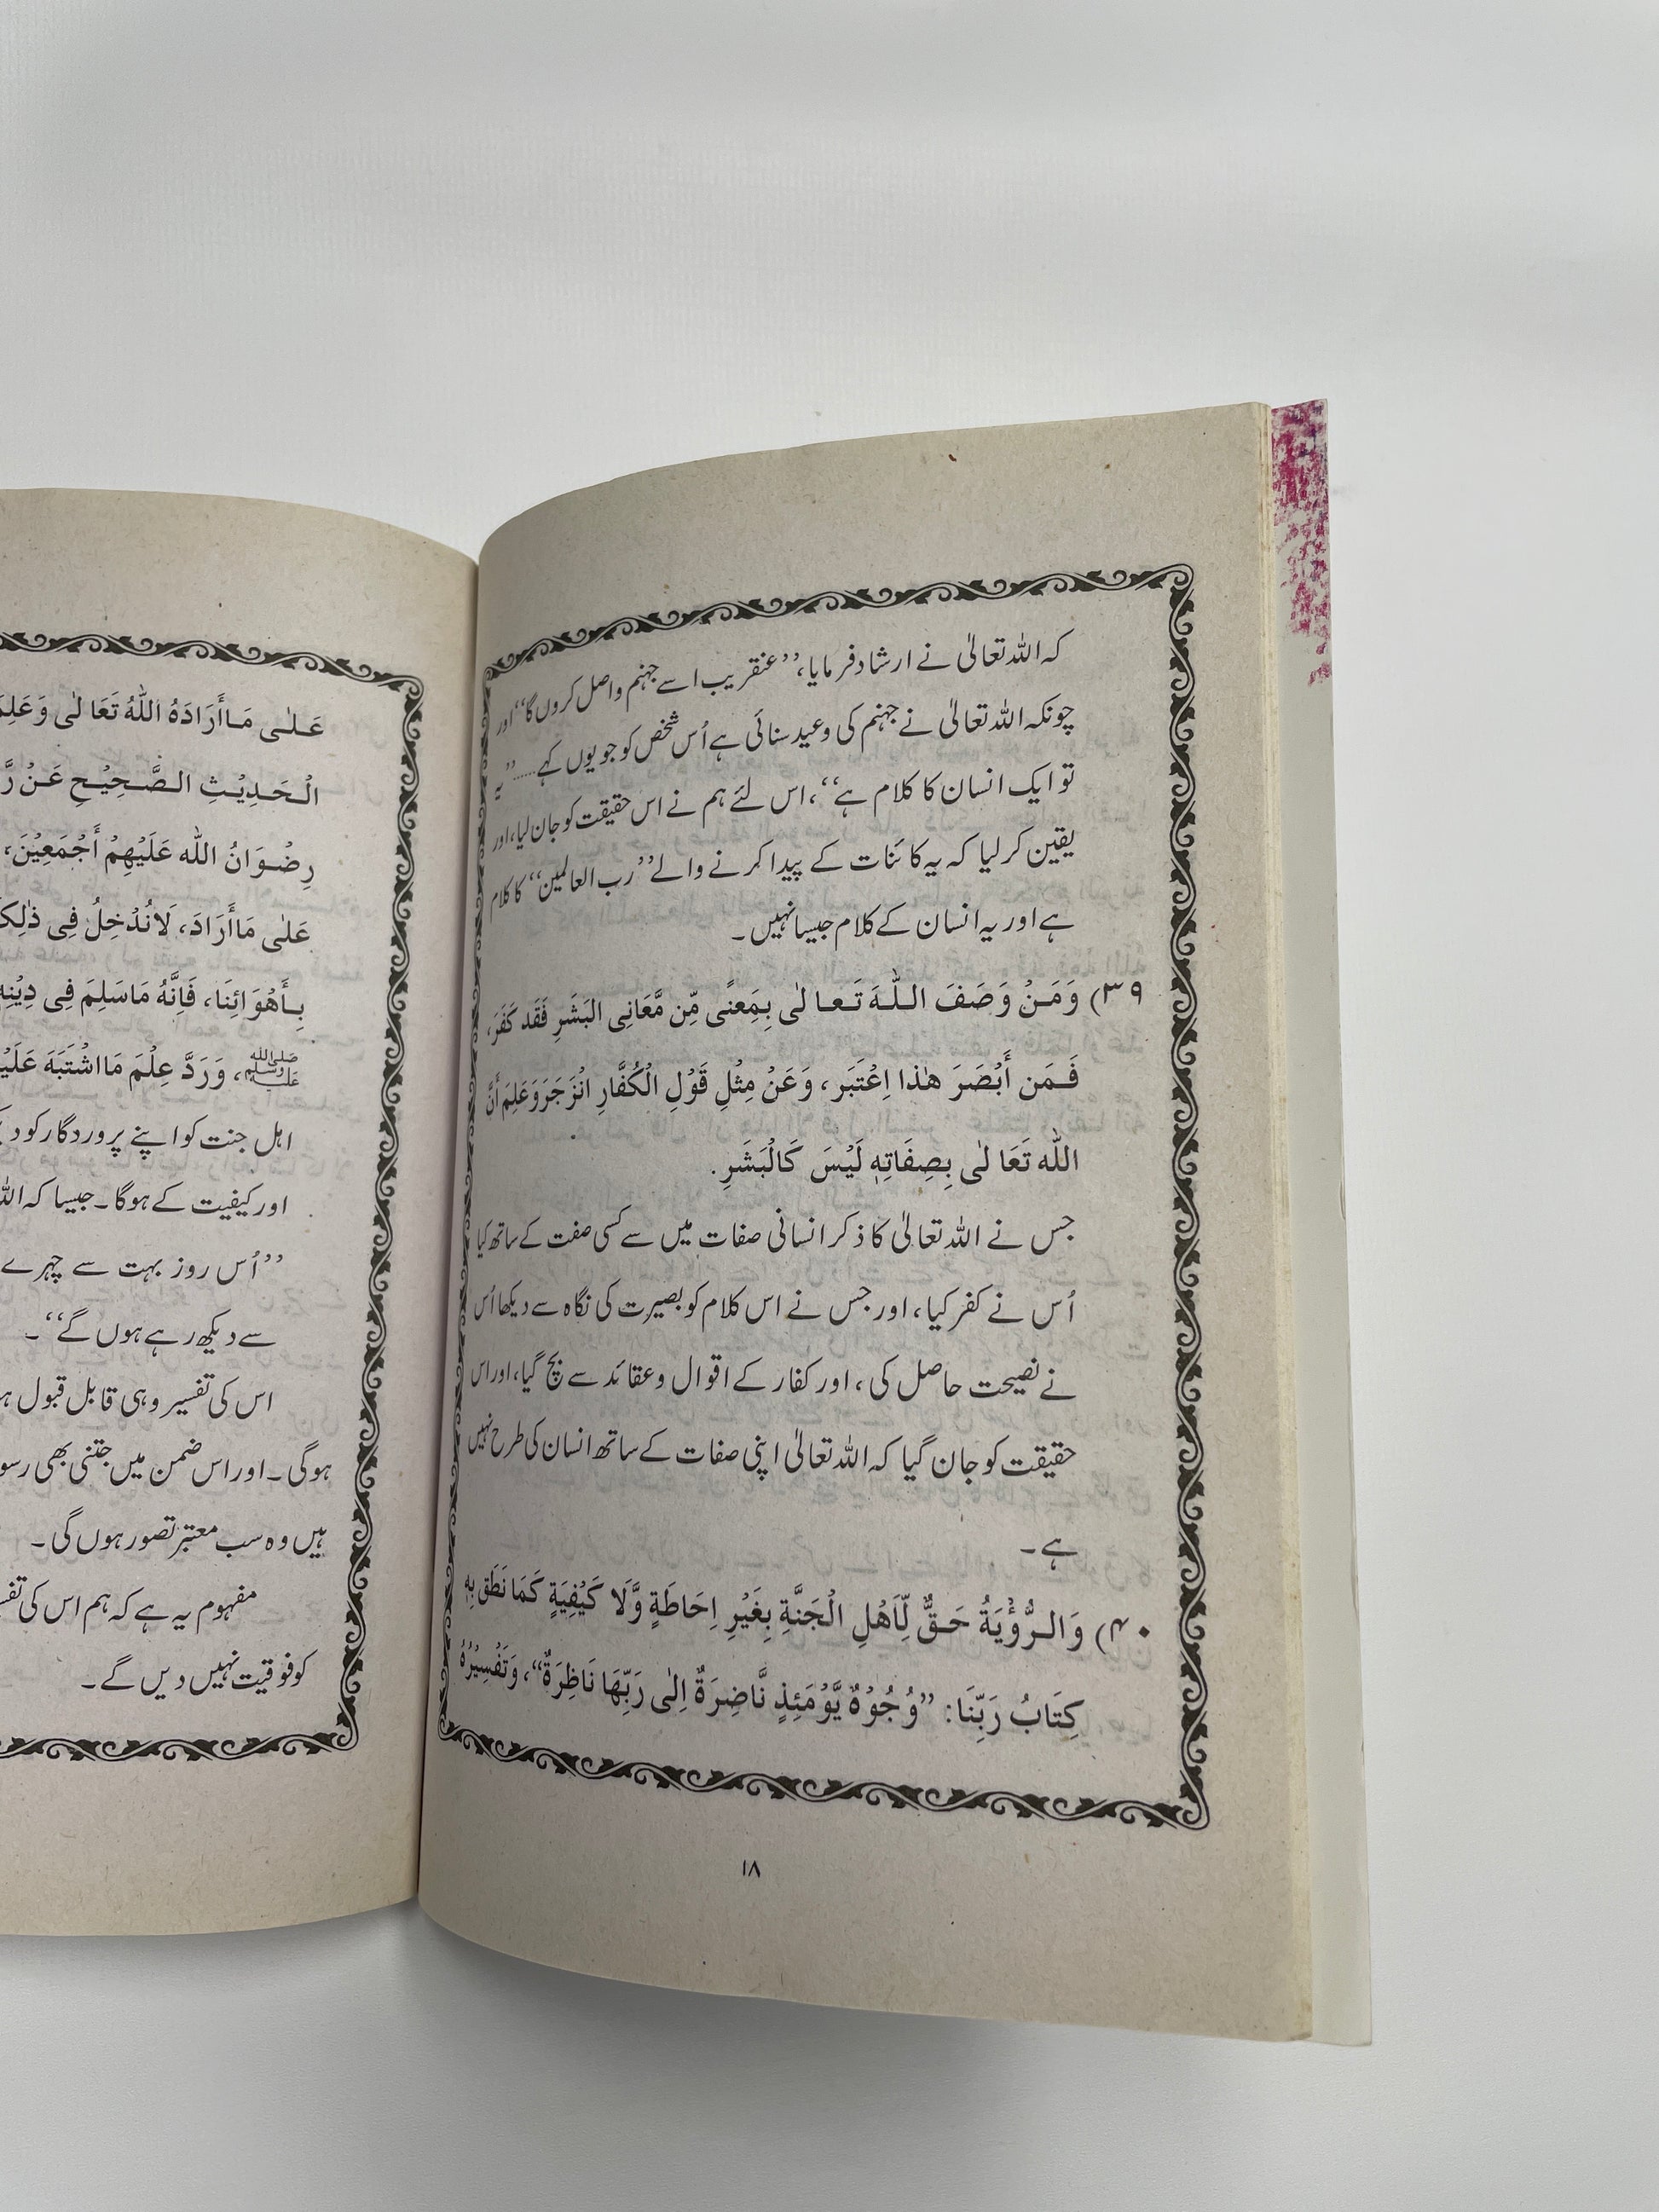 کہ اللہ تعالیٰ نے ارشاد فرمایا، ’’عنقریب اسے جہنم واصل کروں گا‘‘ اور
چونکہ اللہ تعالیٰ نے جہنم کی وعید سنائی ہے اُس شخص کو جو یوں کہے.....’’یہ
تو ایک انسان کا کلام ہے‘‘، اس لئے ہم نے اس حقیقت کو جان لیا، اور
یقین کر لیا کہ یہ کائنات کے پیدا کرنے والے ’’رب العالمین‘‘ کا کلام
ہے اور یہ انسان کے کلام جیسا نہیں۔
۳۹) وَمَنْ وَصَفَ اللّٰهَ تَعَالٰى بِمَعنًى مِّن مَّعَانِى البَشَرِ فَقَد كَفَرَ،
فَمَن أَبْصَرَ هٰذا اِعْتَبَر، وَعَنْ مِثْلِ قَوْلِ الْكُفَّارِ انْزَجَرَ وَعَلِمَ أَنَّ
اللّٰه تَعَالٰى بِصِفَاتِهٖ لَيْسَ كَالْبَشَرِ.
جس نے اللہ تعالیٰ کا ذکر انسانی صفات میں سے کسی صفت کے ساتھ کیا
اُس نے کفر کیا، اور جس نے اس کلام کو بصیرت کی نگاہ سے دیکھا اُس
نے نصیحت حاصل کی، اور کفار کے اقوال و عقائد سے بچ گیا، اور اس
حقیقت کو جان گیا کہ اللہ تعالیٰ اپنی صفات کے ساتھ انسان کی طرح نہیں
ہے۔
۴۰) وَالرُّؤْيَةُ حَقٌّ لِّاَهْلِ الْجَنَّةِ بِغَيْرِ اِحَاطَةٍ وَّلَا كَيْفِيَةٍ كَمَا نَطَقَ بِهٖ
كِتَابُ رَبِّنَا: ”وُجُوْهٌ يَّوْمَئِذٍ نَّاضِرَةٌ اِلٰى رَبِّهَا نَاظِرَةٌ“، وَتَفْسِيْرُهٗ
۱۸
عَلٰى مَا أَرَادَهُ اللّٰهُ تَعَالٰى وَعَلِمَ
الْحَدِيْثِ الصَّحِيْحِ عَنْ
رِضْوَانُ اللّٰه عَلَيْهِمْ أَجْمَعِيْنَ،
عَلٰى مَا أَرَادَ، لَانُدْخِلُ فِى ذٰلِكَ
بِأَهْوَائِنَا، فَاِنَّهُ مَاسَلِمَ فِى دِيْنِهٖ
ﷺ، وَرَدَّ عِلْمَ مَا اشْتَبَهَ
اہل جنت کو اپنے پروردگار کو
اور کیفیت کے ہوگا۔ جیسا کہ
’’اُس روز بہت سے چہرے
سے دیکھ رہے ہوں گے‘‘۔
اس کی تفسیر وہی قابل قبول
ہوگی۔ اور اس ضمن میں جتنی بھی
ہیں وہ سب معتبر تصور ہوں گی۔
مفہوم یہ ہے کہ ہم اس کی
کو فوقیت نہیں دیں گے۔